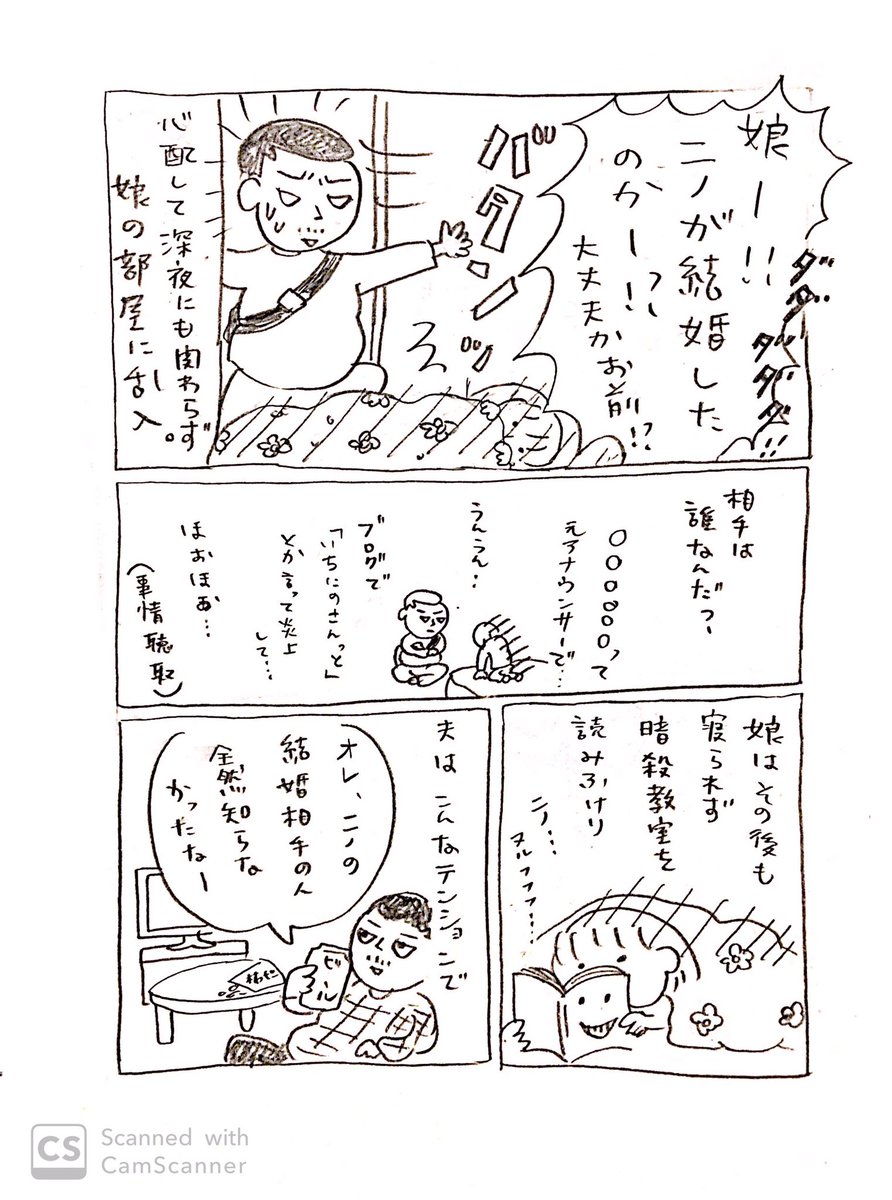 ダダダダダ!!
娘ー!!
ニノが結婚した
のかー!?
大丈夫かお前!?
バタンッ
心配して深夜にも関わらず
娘の部屋に乱入。
相手は
誰なんだ?
○○○○○○って
元アナウンサーで…
うんうん…
ブログで
「いちにのさんっと」
とか言って炎上
して…
ほおほお…
(事情聴取)
娘はその後も
寝られず
暗殺教室を
読みふけり
ニノ…
ヌルフフフ…
夫はこんなテンションで
オレ、ニノの
結婚相手の人
全然知らな
かったなー
ビール
CS
Scanned with
CamScanner